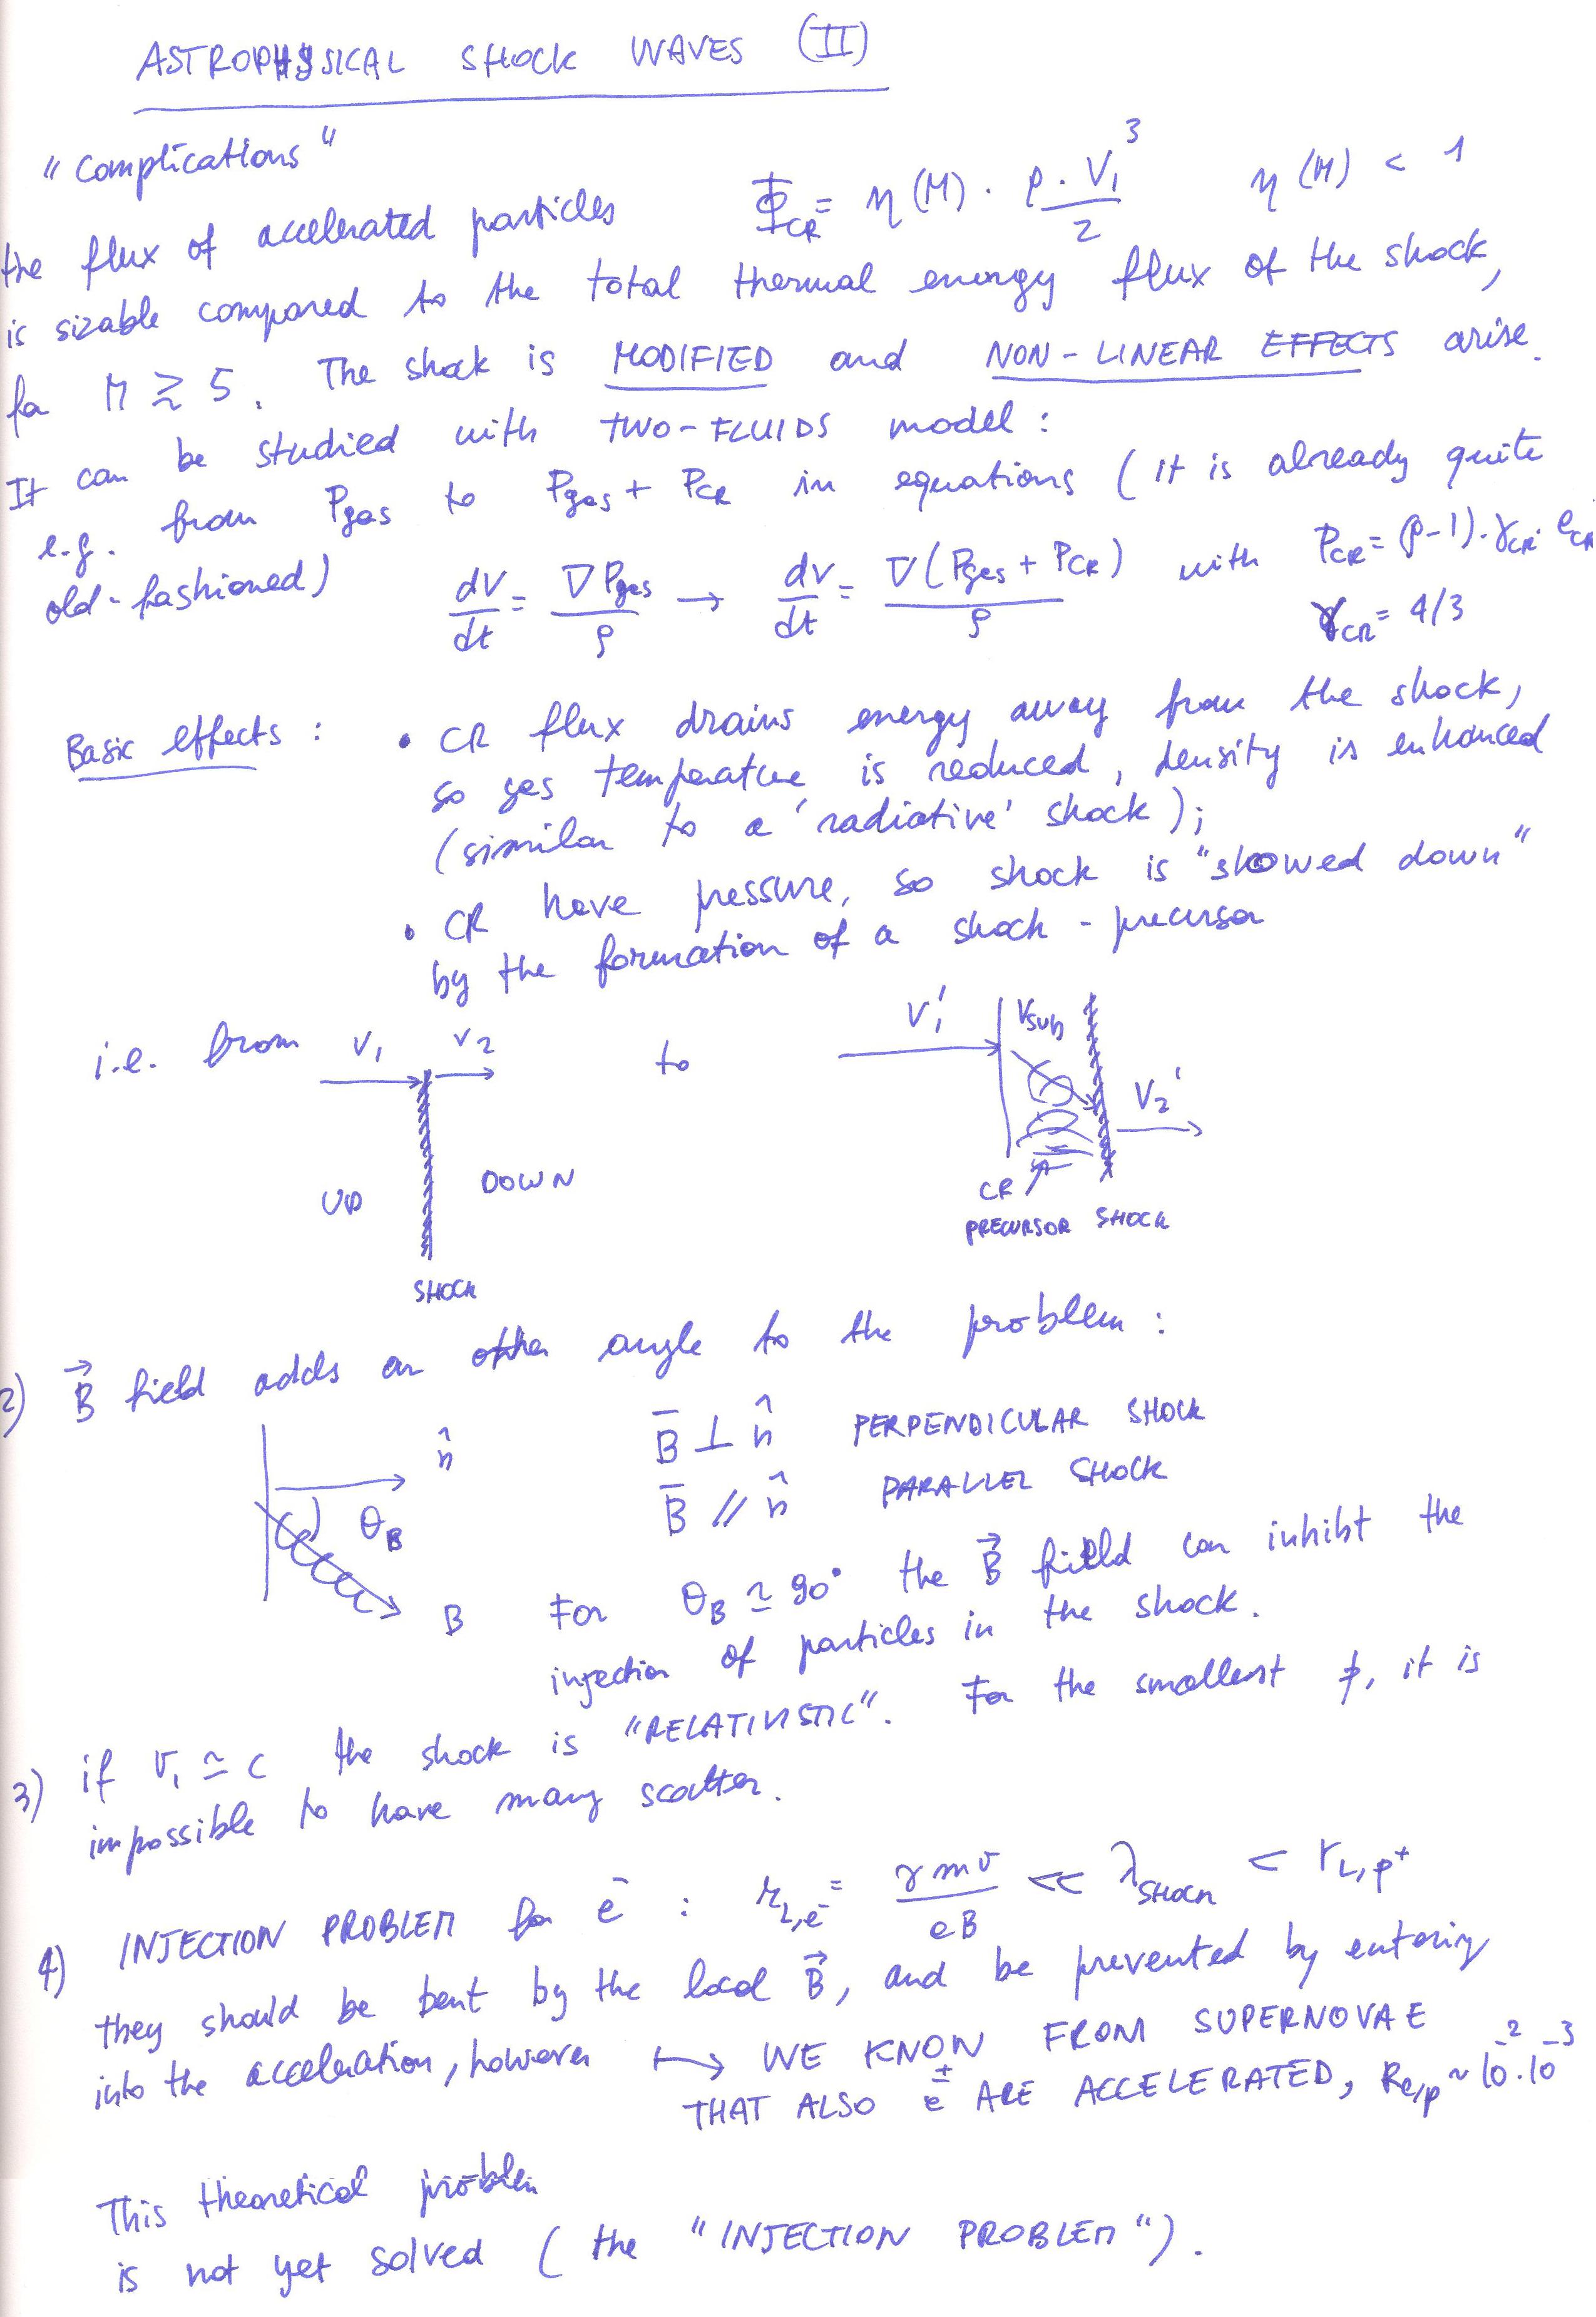 ASTROPHYSICAL SHOCK WAVES (II)
"Complications"
the flux of accelerated particles Φ_CR = η(M) · ρ · V₁³/2 η(M) < 1
is sizable compared to the total thermal energy flux of the shock,
for M ≳ 5. The shock is MODIFIED and NON-LINEAR EFFECTS arise.
It can be studied with TWO-FLUIDS model:
e.g. from Pgas to Pgas + PCR in equations (it is already quite
old-fashioned) dV/dt = ∇Pgas/ρ → dV/dt = ∇(Pgas + PCR)/ρ with PCR = (ρ-1)·γCR·eCR
γCR = 4/3
Basic effects: • CR flux drains energy away from the shock,
so gas temperature is reduced, density is enhanced
(similar to a 'radiative' shock);
• CR have pressure, so shock is "slowed down"
by the formation of a shock-precursor
i.e. from V₁ V₂ to V₁' Vsub V₂'
UP DOWN
CR
PRECURSOR SHOCK
SHOCK
2) B⃗ field adds an other angle to the problem:
n̂ B̄ ⊥ n̂ PERPENDICULAR SHOCK
θB B̄ // n̂ PARALLEL SHOCK
B For θB ≃ 90° the B⃗ field can inhibt the
injection of particles in the shock.
3) if v₁ ≃ c the shock is "RELATIVISTIC". For the smallest p, it is
impossible to have many scatter.
4) INJECTION PROBLEM for e⁻ : r_L,e⁻ = γmv/eB << λSHOCK < r_L,p⁺
they should be bent by the local B⃗, and be prevented by entering
into the acceleration, however ↦ WE KNOW FROM SUPERNOVAE
THAT ALSO e± ARE ACCELERATED, Re/p ~ 10⁻²·10⁻³
This theoretical problem
is not yet solved (the "INJECTION PROBLEM").